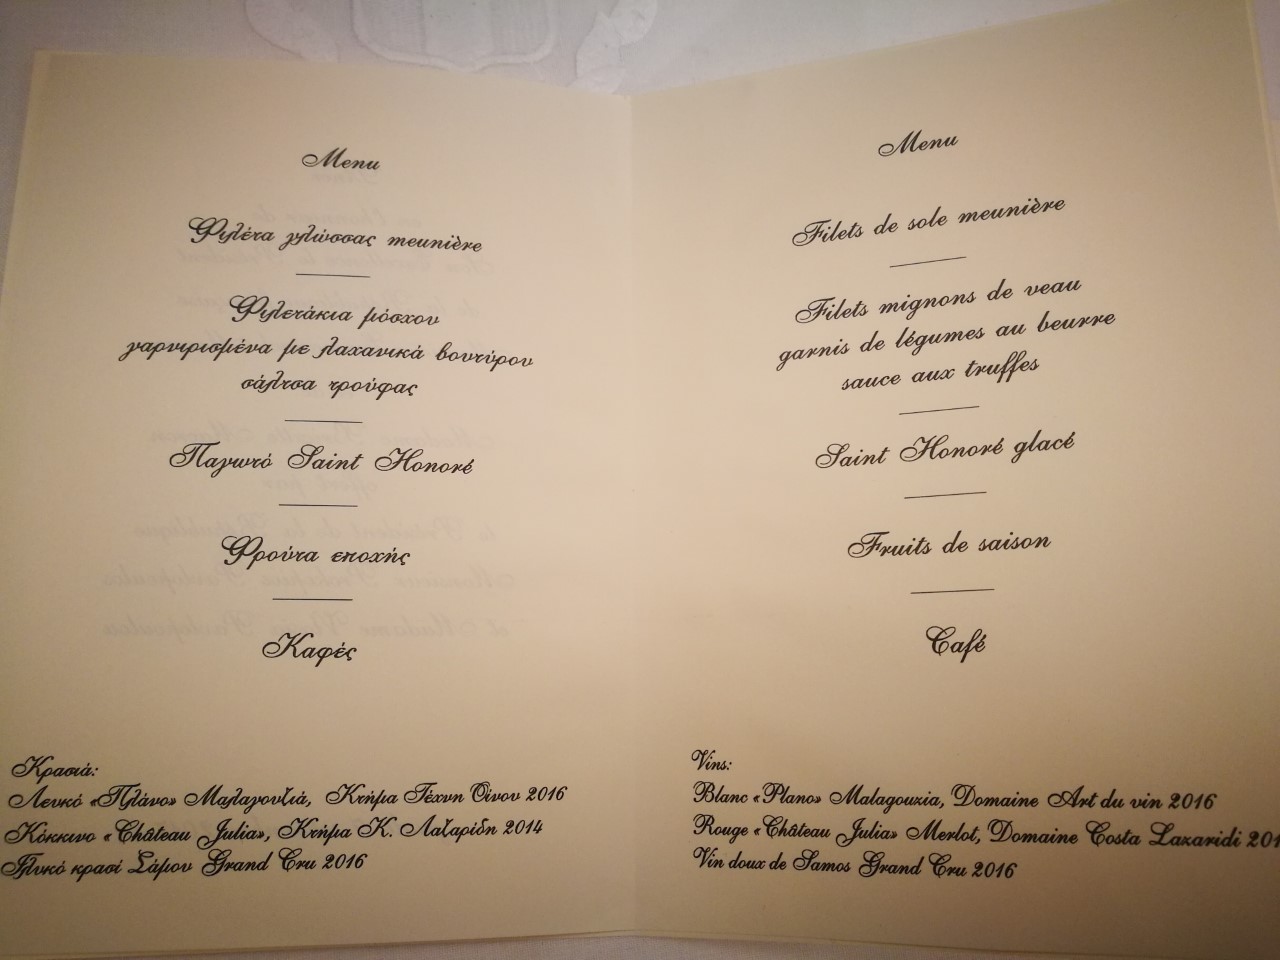 Menu
Φιλέτα γλώσσας meunière
Φιλετάκια μόσχου
γαρνιρισμένα με λαχανικά βουτύρου
σάλτσα τρούφας
Παγωτό Saint Honoré
Φρούτα εποχής
Καφές
Κρασιά:
Λευκό «Πλάνο» Μαλαγουζιά, Κτήμα Τέχνη Οίνου 2016
Κόκκινο «Château Julia», Κτήμα Κ. Λαζαρίδη 2014
Γλυκό κρασί Σάμου Grand Cru 2016
Menu
Filets de sole meunière
Filets mignons de veau
garnis de légumes au beurre
sauce aux truffes
Saint Honoré glacé
Fruits de saison
Café
Vins:
Blanc «Plano» Malagouzia, Domaine Art du vin 2016
Rouge «Château Julia» Merlot, Domaine Costa Lazaridi
Vin doux de Samos Grand Cru 2016